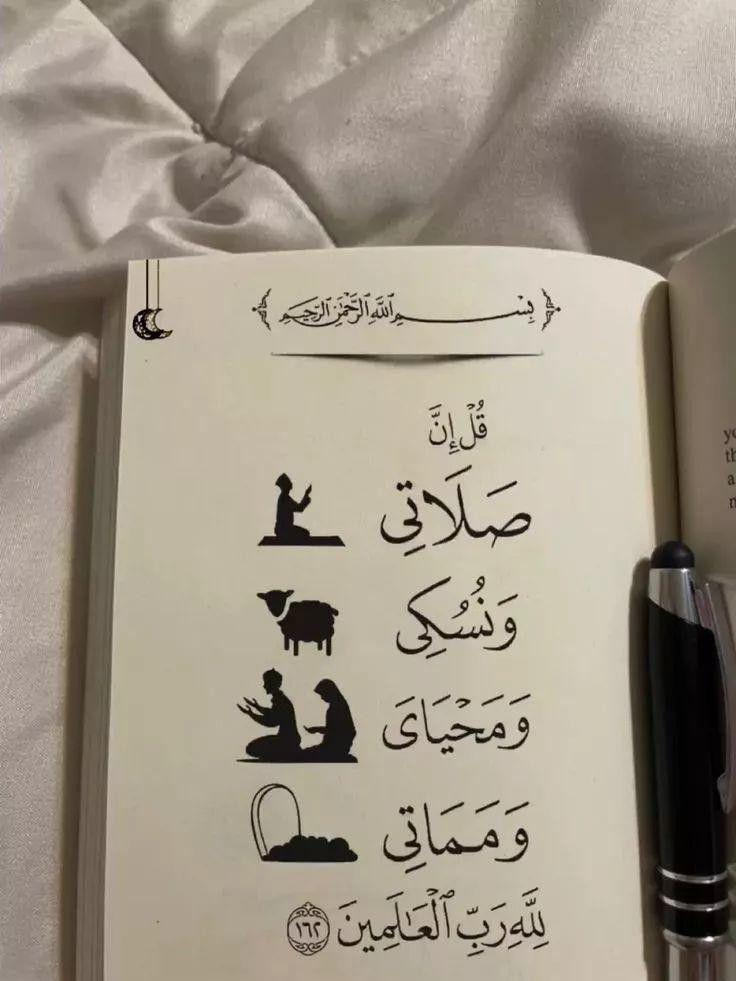 بِسْمِ ٱللَّهِ ٱلرَّحْمَٰنِ ٱلرَّحِيمِ
قُلْ إِنَّ
صَلَاتِي
وَنُسُكِي
وَمَحْيَايَ
وَمَمَاتِي
لِلَّهِ رَبِّ ٱلْعَالَمِينَ ١٦٢